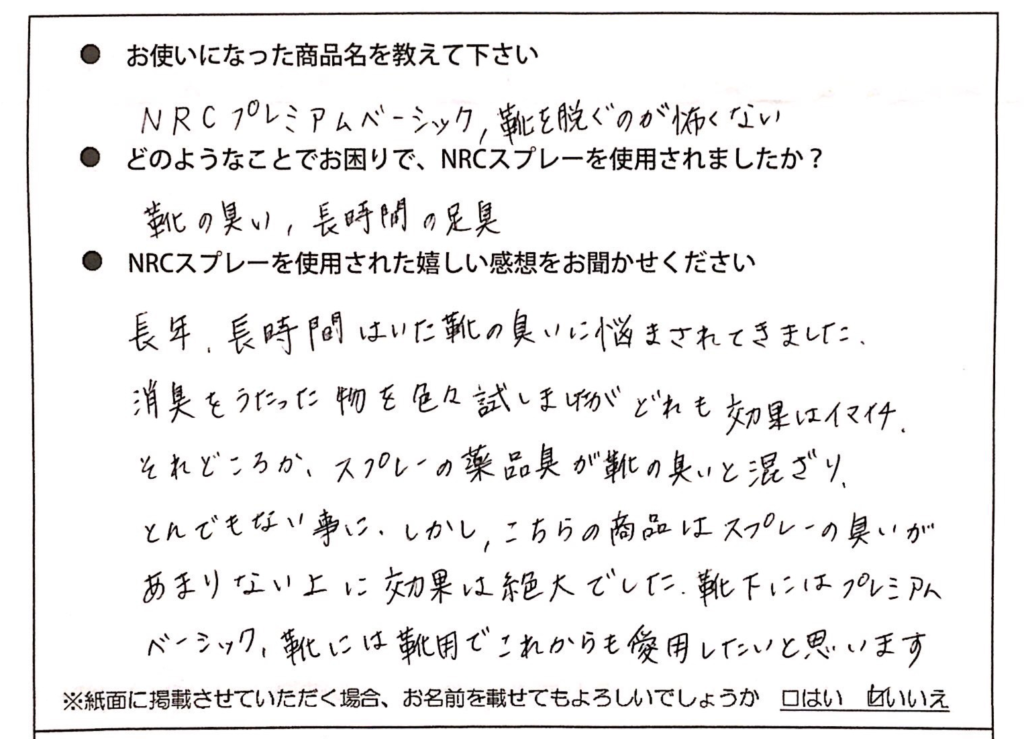 ● お使いになった商品名を教えて下さい
NRCプレミアムベーシック, 靴を脱ぐのが怖くない
● どのようなことでお困りで、NRCスプレーを使用されましたか？
靴の臭い, 長時間の足臭
● NRCスプレーを使用された嬉しい感想をお聞かせください
長年、長時間はいた靴の臭いに悩まされてきました.
消臭をうたった物を色々試しましたがどれも効果はイマイチ.
それどころか、スプレーの薬品臭が靴の臭いと混ざり、
とんでもない事に. しかし, こちらの商品はスプレーの臭いが
あまりない上に効果は絶大でした. 靴下にはプレミアム
ベーシック、靴には靴用でこれからも愛用したいと思います
※紙面に掲載させていただく場合、お名前を載せてもよろしいでしょうか □はい ☑いいえ